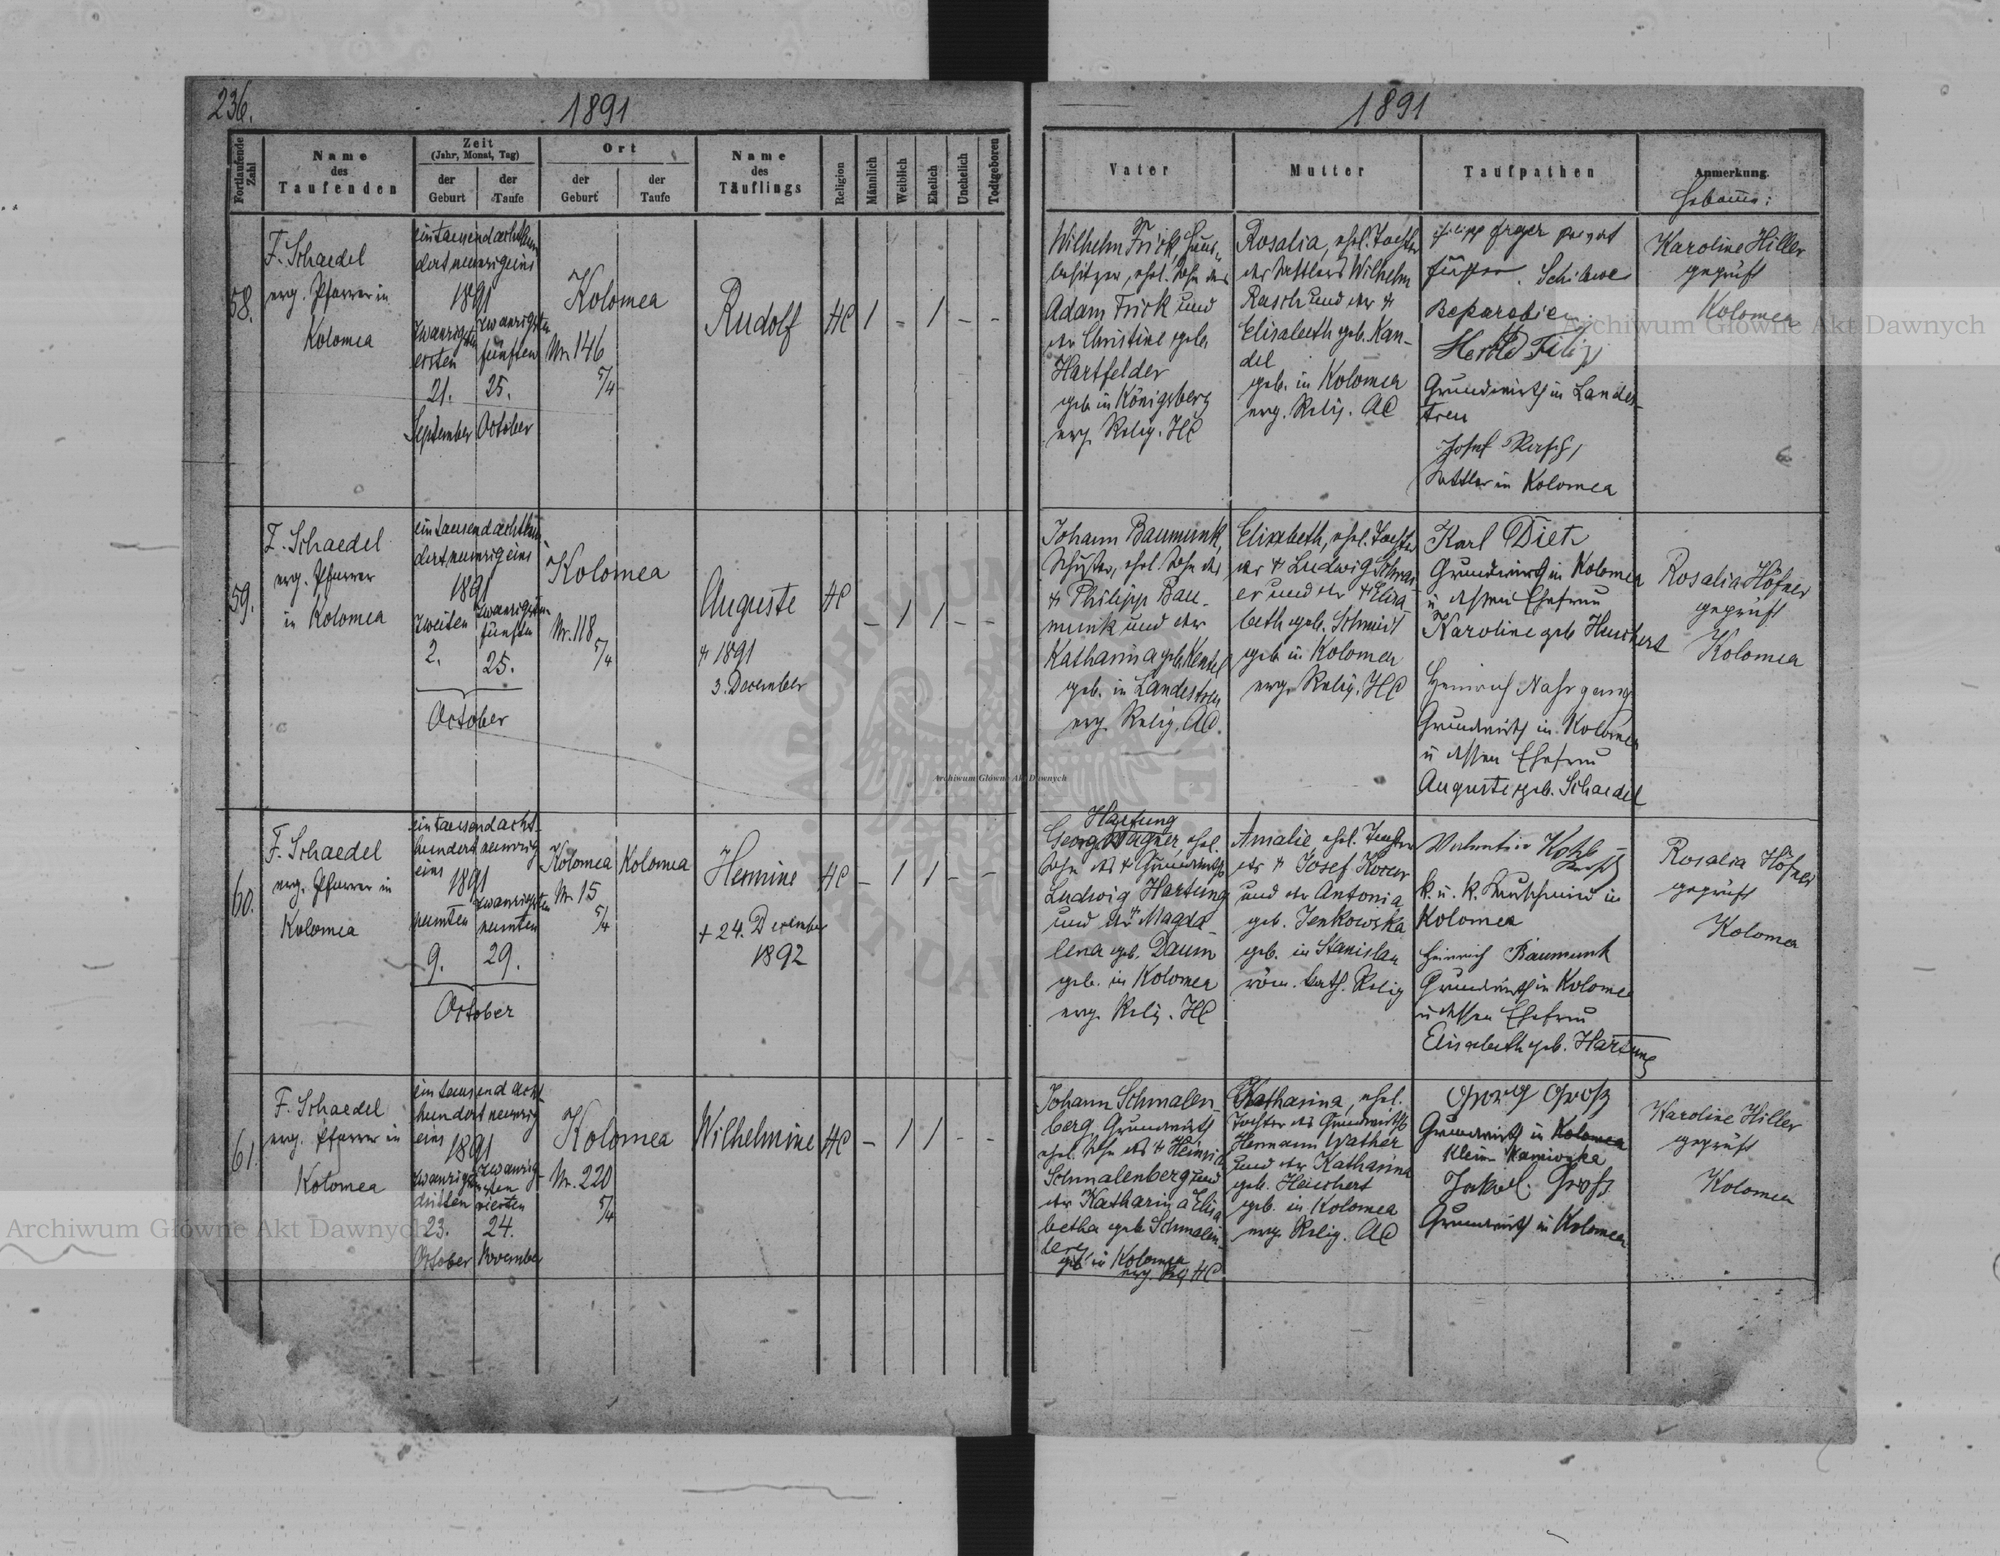 236.
1891
Fortlaufende Zahl
Name
des
Taufenden
Zeit
(Jahr, Monat, Tag)
der
Geburt
der
Taufe
Ort
der
Geburt
der
Taufe
Name
des
Täuflings
Religion
Männlich
Weiblich
Ehelich
Unehelich
Todtgeboren
58.
F. Schaedel
evg. Pfarrer in
Kolomea
eintausendachthun
dertneunzigeins
1891
zwanzigsten
ersten
21.
September
zwanzigsten
fünften
25.
October
Kolomea
Nr. 146
5/4
Rudolf
HC
1
-
1
-
-
59.
F. Schaedel
evg. Pfarrer
in Kolomea
eintausendachthun
dertneunzigeins
1891
zweiten
2.
fünften
25.
October
Kolomea
Nr. 118
5/4
Auguste
HC
-
1
1
-
-
† 1891
3. December
60.
F. Schaedel
evg. Pfarrer in
Kolomea
eintausendacht-
hundertneunzig
eins
1891
neunten
9.
zwanzigsten
neunten
29.
October
Kolomea
Nr. 15
5/4
Kolomea
Hermine
HC
-
1
1
-
-
† 24. December
1892
61.
F. Schaedel
evg. Pfarrer in
Kolomea
eintausendacht-
hundertneunzig
eins
1891
dritten
23.
October
vierten
24.
November
Kolomea
Nr. 220
5/4
Wilhelmine
HC
-
1
1
-
-
1891
Vater
Mutter
Taufpathen
Anmerkung.
Hebamme:
Wilhelm Frick, Haus-
besitzer, ehel. Sohn des
Adam Frick und
der Christine geb.
Hartfelder
geb. in Königsberg
evg. Relig. HC
Rosalia, ehel. Tochter
des Sattlers Wilhelm
Rasch und der †
Elisabeth geb. Kan-
del
geb. in Kolomea
evg. Relig. AC
Herold Filip
Grundwirth in Landes-
treu
Josef Rasch,
Sattler in Kolomea
Karoline Hiller
geprüft
Kolomea
Johann Baumunk,
Schuster, ehel. Sohn des
† Philipp Bau-
munk und der
Katharina geb.
geb. in Landestreu
evg. Relig. AC.
Elisabeth, ehel. Tochter
des † Ludwig
er und der † Elisa-
beth geb. Schmidt
geb. in Kolomea
evg. Relig. HC
Karl Dietz
Grundwirth in Kolomea
u dessen Ehefrau
Karoline geb. Heuchert
Heinrich Nahrgang
Grundwirth in Kolomea
u dessen Ehefrau
Auguste geb. Schaedel
Rosalia Höfner
geprüft
Kolomea
Hartung
Georg Wagner, ehel.
Sohn des † Grundwirths
Ludwig Hartung
und der † Magda-
lena geb. Daum
geb. in Kolomea
evg. Relig. HC
Amalie, ehel. Tochter
des † Josef
und der Antonia
geb. Jenkowska
geb. in Stanislau
röm. kath. Relig
Valentin
k. u. k. in
Kolomea
Heinrich Baumunk
Grundwirth in Kolomea
u dessen Ehefrau
Elisabeth geb. Hartung
Rosalia Höfner
geprüft
Kolomea
Johann Schmalen-
berg Grundwirth
ehel. Sohn des † Heinrich
Schmalenberg und
der Katharina Elisa
betha geb. Schmalen-
berg
geb. in Kolomea
evg. Rlg HC
Katharina, ehel.
Tochter des Grundwirths
Hermann Walther
und der Katharina
geb. Heuchert
geb. in Kolomea
evg. Relig. AC
Georg Groß
Grundwirth in Kolomea
Klein Kamionka
Jakob Groß
Grundwirth in Kolomea
Karoline Hiller
geprüft
Kolomea
Archiwum Główne Akt Dawnych
Archiwum Główne Akt Dawnych
Archiwum Główne Akt Dawnych